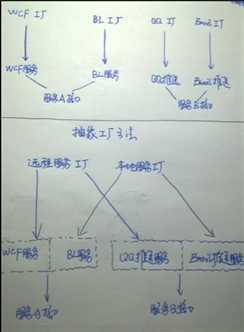 WCF工厂 BL工厂 QQ工厂 Email工厂
WCF服务 BL服务 QQ推送 Email推送
服务A接口 服务B接口
抽象工厂方法
远程服务工厂 本地服务工厂
WCF服务 BL服务 QQ推送服务 Email推送服务
服务A接口 服务B接口